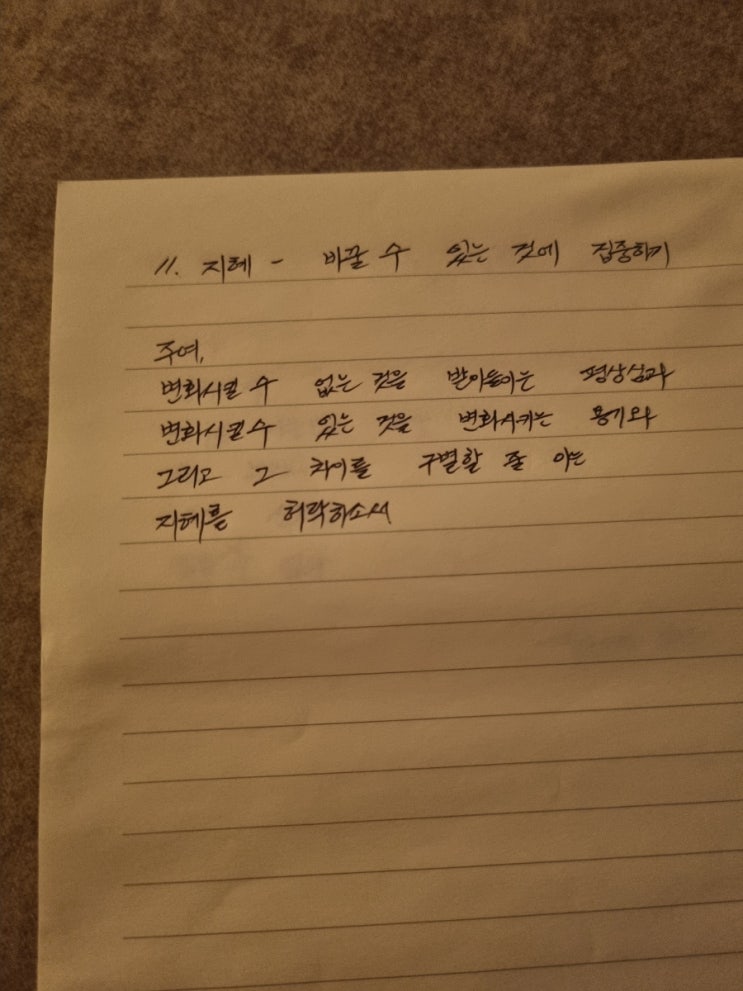 11. 지혜 - 바꿀 수 있는 것에 집중하기
주여,
변화시킬 수 없는 것을 받아들이는 평상심과
변화시킬수 있는 것을 변화시키는 용기와
그리고 그 차이를 구별할 줄 아는
지혜를 허락하소서